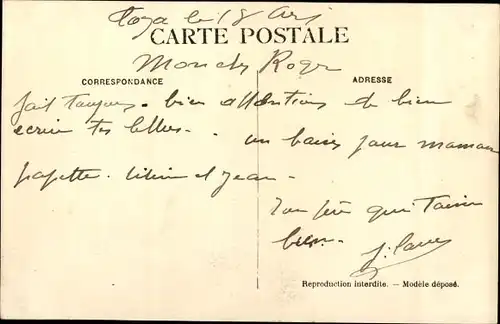 le 18
CARTE POSTALE
Mon cher Roger
CORRESPONDANCE
ADRESSE
fait toujours bien attention de bien
ecrire tes lettres. un baiser pour maman
et Jean.
Ton père qui t'aime
bien.
Reproduction interdite. — Modèle déposé.